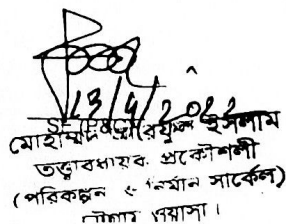 13/4/2022
মোহাম্মদ আরিফুল ইসলাম
তত্ত্বাবধায়ক প্রকৌশলী
(পরিকল্পন ও নির্মান সার্কেল)
ওয়াসা।